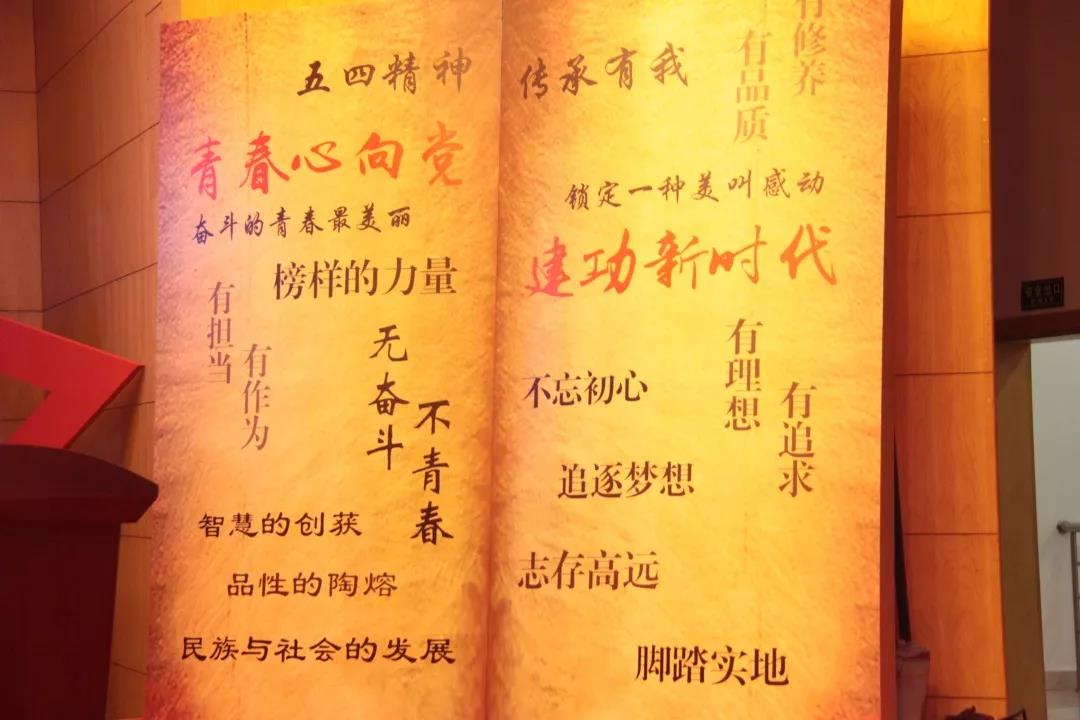 五四精神
青春心向党
奋斗的青春最美丽
榜样的力量
有担当
有作为
无奋斗
不青春
智慧的创获
品性的陶熔
民族与社会的发展
传承有我
有品质
有修养
锁定一种美叫感动
建功新时代
有理想
有追求
不忘初心
追逐梦想
志存高远
脚踏实地
安全出口